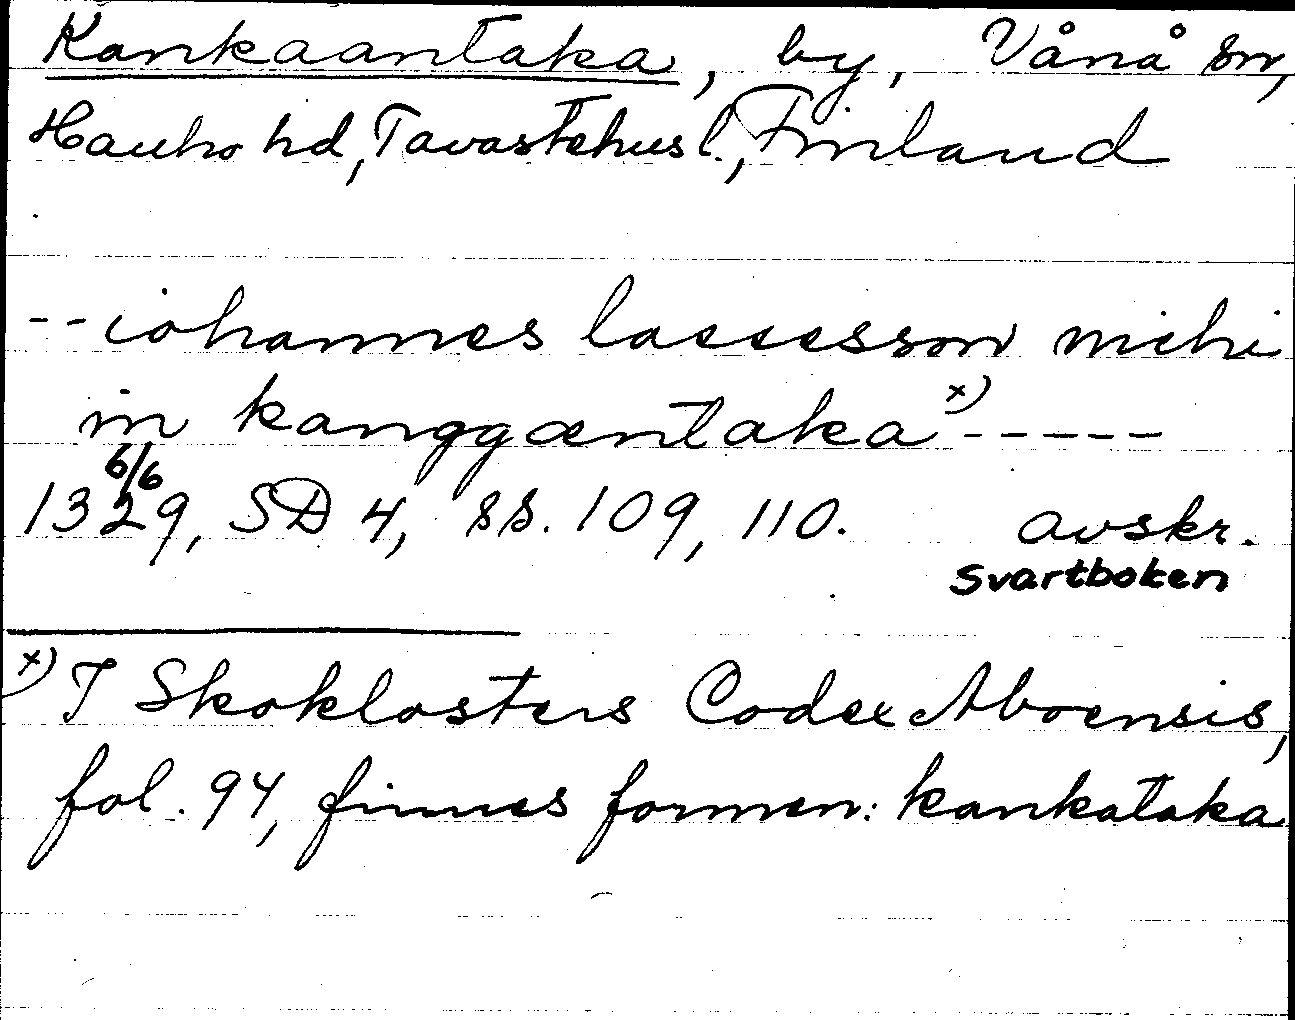 Kankaantaka, by, Vånå sn,
Hauho hd, Tavastehus l., Finland
-- iohannes lassesson mihi
in kanggæntaka x) -----
6/6
1329, SD 4, ss. 109, 110. avskr.
Svartboken
x) I Skoklosters Codex Aboensis,
fol. 94, finnes formen: kankataka